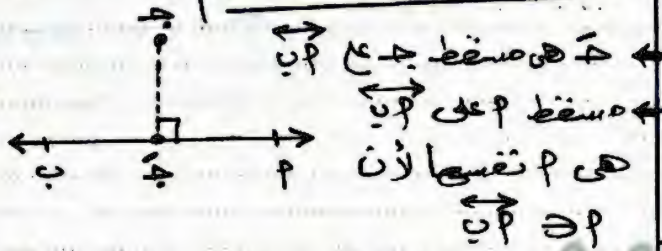 جـ
← جـَ هى مسقط جـ ع أب
← مسقط أ على أب
هى أ نفسها لأن
أ ∈ أب
ب جـَ أ